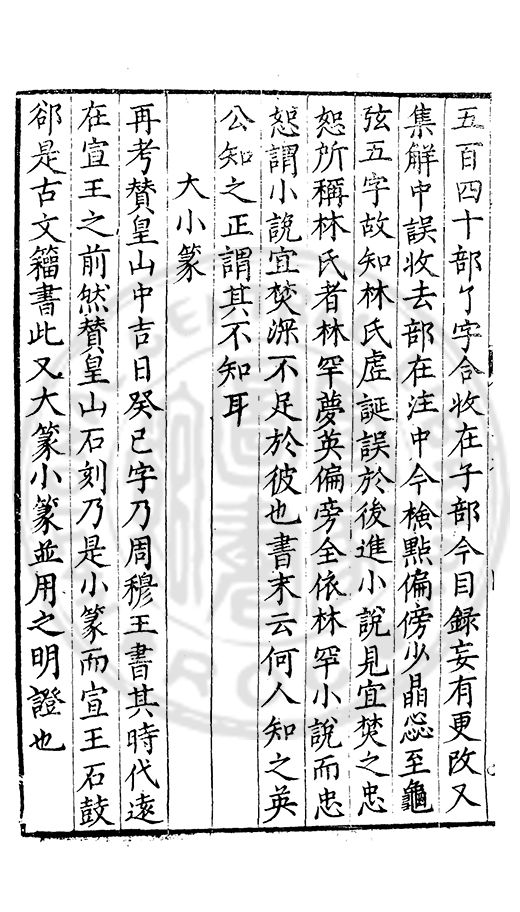 五百四十部了字合收在子部今目録妄有更改又
集解中誤收去部在注中今檢點偏傍少晶惢至龜
弦五字故知林氏虛誕誤於後進小說見宜焚之忠
恕所稱林氏者林罕夢英偏旁全依林罕小說而忠
恕謂小說宜焚深不足於彼也書末云何人知之英
公知之正謂其不知耳
大小篆
再考贊皇山中吉日癸巳字乃周穆王書其時代遠
在宣王之前然贊皇山石刻乃是小篆而宣王石鼓
郤是古文籀書此又大篆小篆並用之明證也